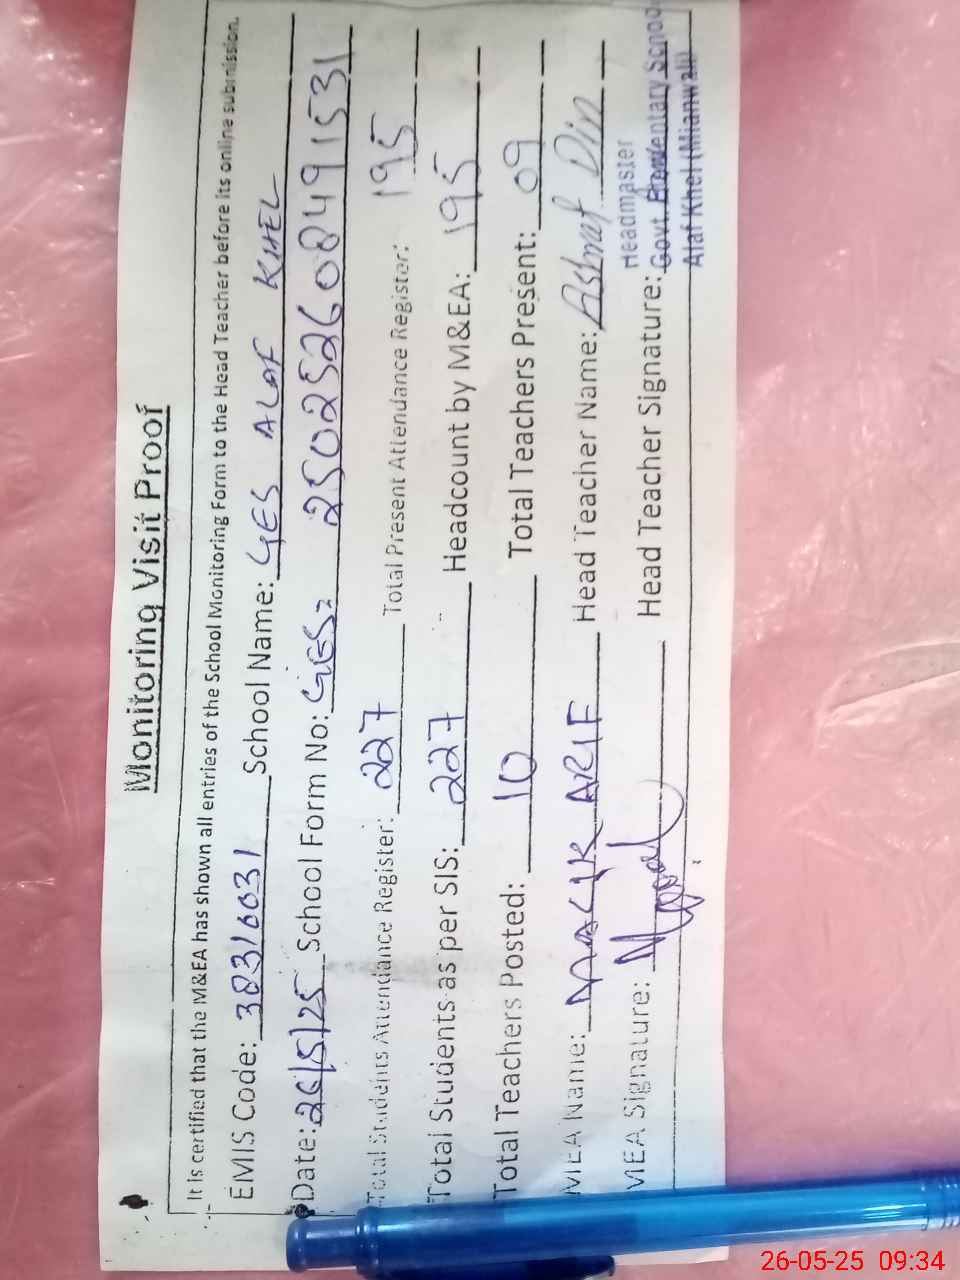 Monitoring Visit Proof
It is certified that the M&EA has shown all entries of the School Monitoring Form to the Head Teacher before its online submission.
EMIS Code: 38310031 School Name: GES ALAF KHEL
Date: 26/5/25 School Form No: GES. 250252608491531
Total Students Attendance Register: 227 Total Present Attendance Register: 195
Total Students as per SIS: 227 Headcount by M&EA: 195
Total Teachers Posted: 10 Total Teachers Present: 09
MEA Name: MALIK ARIF Head Teacher Name: Ashraf Din
MEA Signature: Head Teacher Signature:
Headmaster
Govt. Elementary School
Alaf Khel (Mianwali)
26-05-25 09:34